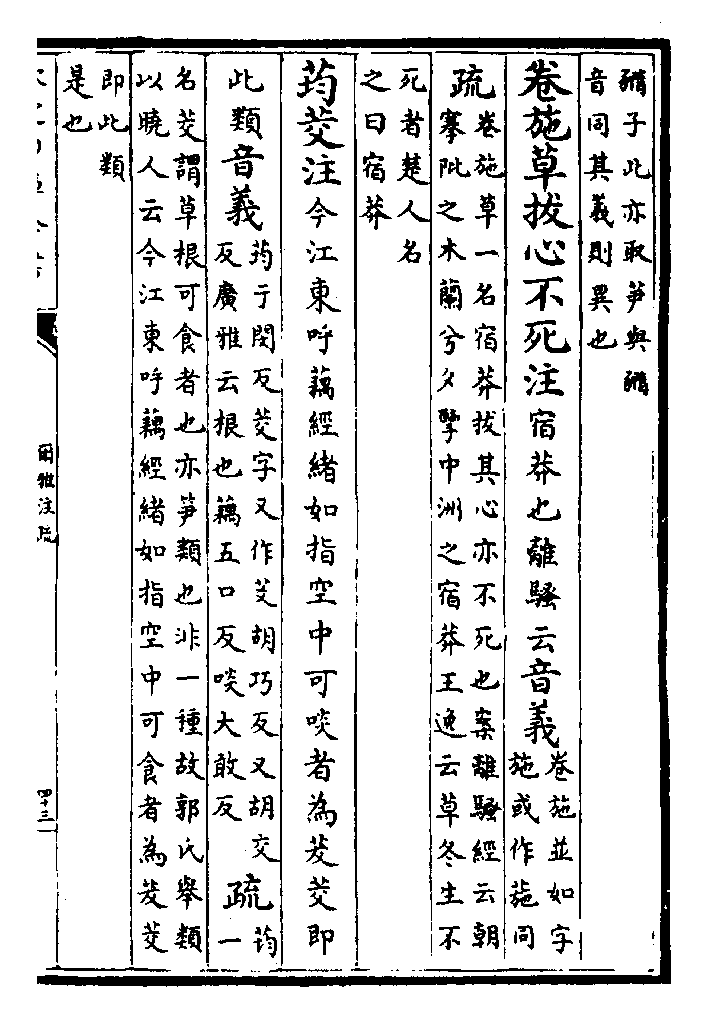 子此亦取笋與
音同其義則異也
卷施草拔心不死注宿莽也離騷云音義
卷施並如字
施或作葹同
疏
卷施草一名宿莽拔其心亦不死也案離騷經云朝
搴阰之木蘭兮夕擥中洲之宿莽王逸云草冬生不
死者楚人名
之曰宿莽
荺茭注今江東呼藕經緒如指空中可啖者為茇茭即
此類音義
荺于閔反茭字又作胡巧反又胡交
反廣雅云根也藕五口反啖大敢反
疏
荺
一
名茭謂草根可食者也亦笋類也非一種故郭氏舉類
以曉人云今江東呼藕經緒如指空中可食者為茇茭
即此類
是也
爾雅注疏
四十三